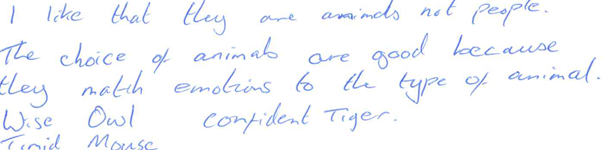 I like that they are animals not people.
The choice of animals are good because
they match emotions to the type of animal.
Wise Owl confident Tiger.
Timid Mouse